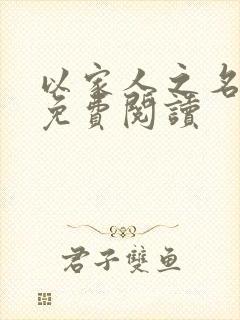 以家人之名
免費閱讀
君子雙魚